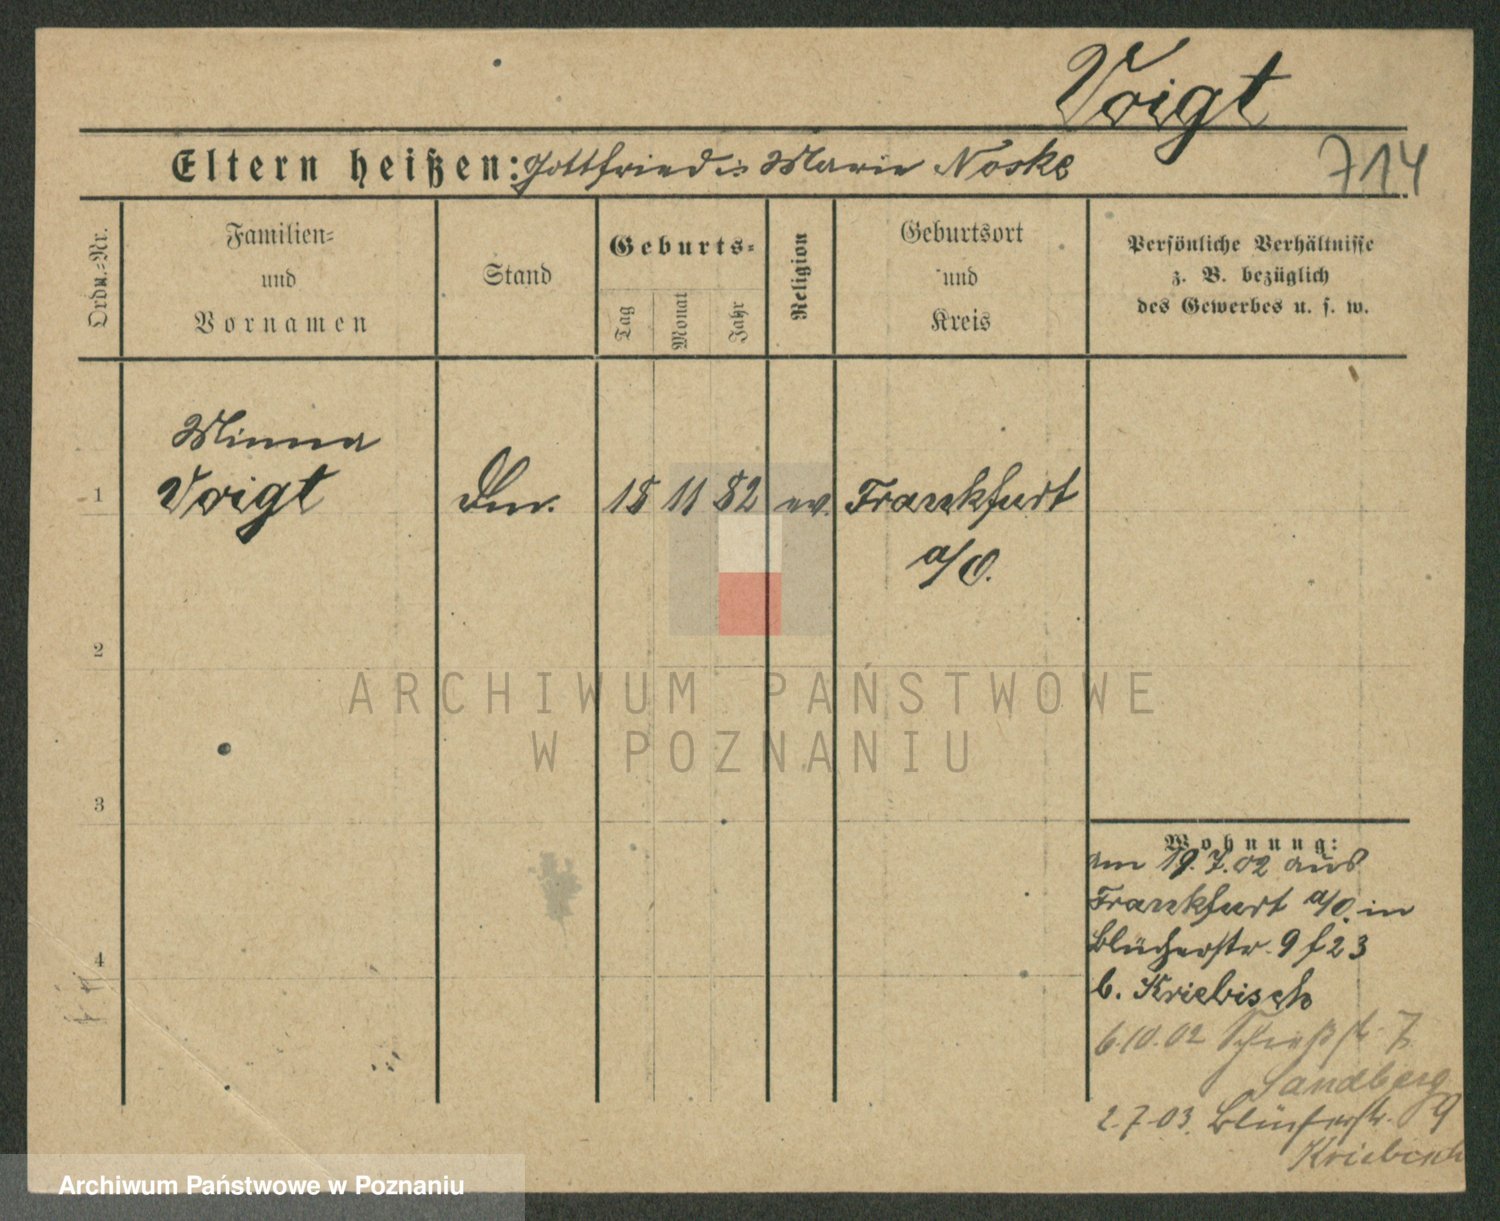 Voigt
Eltern heißen: Gottfried u. Marie Noske
714
Ordn.=Nr.
Familien=
und
Vornamen
Stand
Geburts=
Tag
Monat
Jahr
Religion
Geburtsort
und
Kreis
Persönliche Verhältnisse
z. B. bezüglich
des Gewerbes u. s. w.
Minna
1
Voigt
18 11 82
ev.
Frankfurt
a/O.
2
ARCHIWUM PAŃSTWOWE
W POZNANIU
3
4
Wohnung:
am 19.7.02 aus
Frankfurt a/O. in
Blücherstr. 9 f 23
b. Kriebisch
6.10.02 Schießstr. 7
Sandberg
2.7.03. Blücherstr. 9
Kriebisch
Archiwum Państwowe w Poznaniu